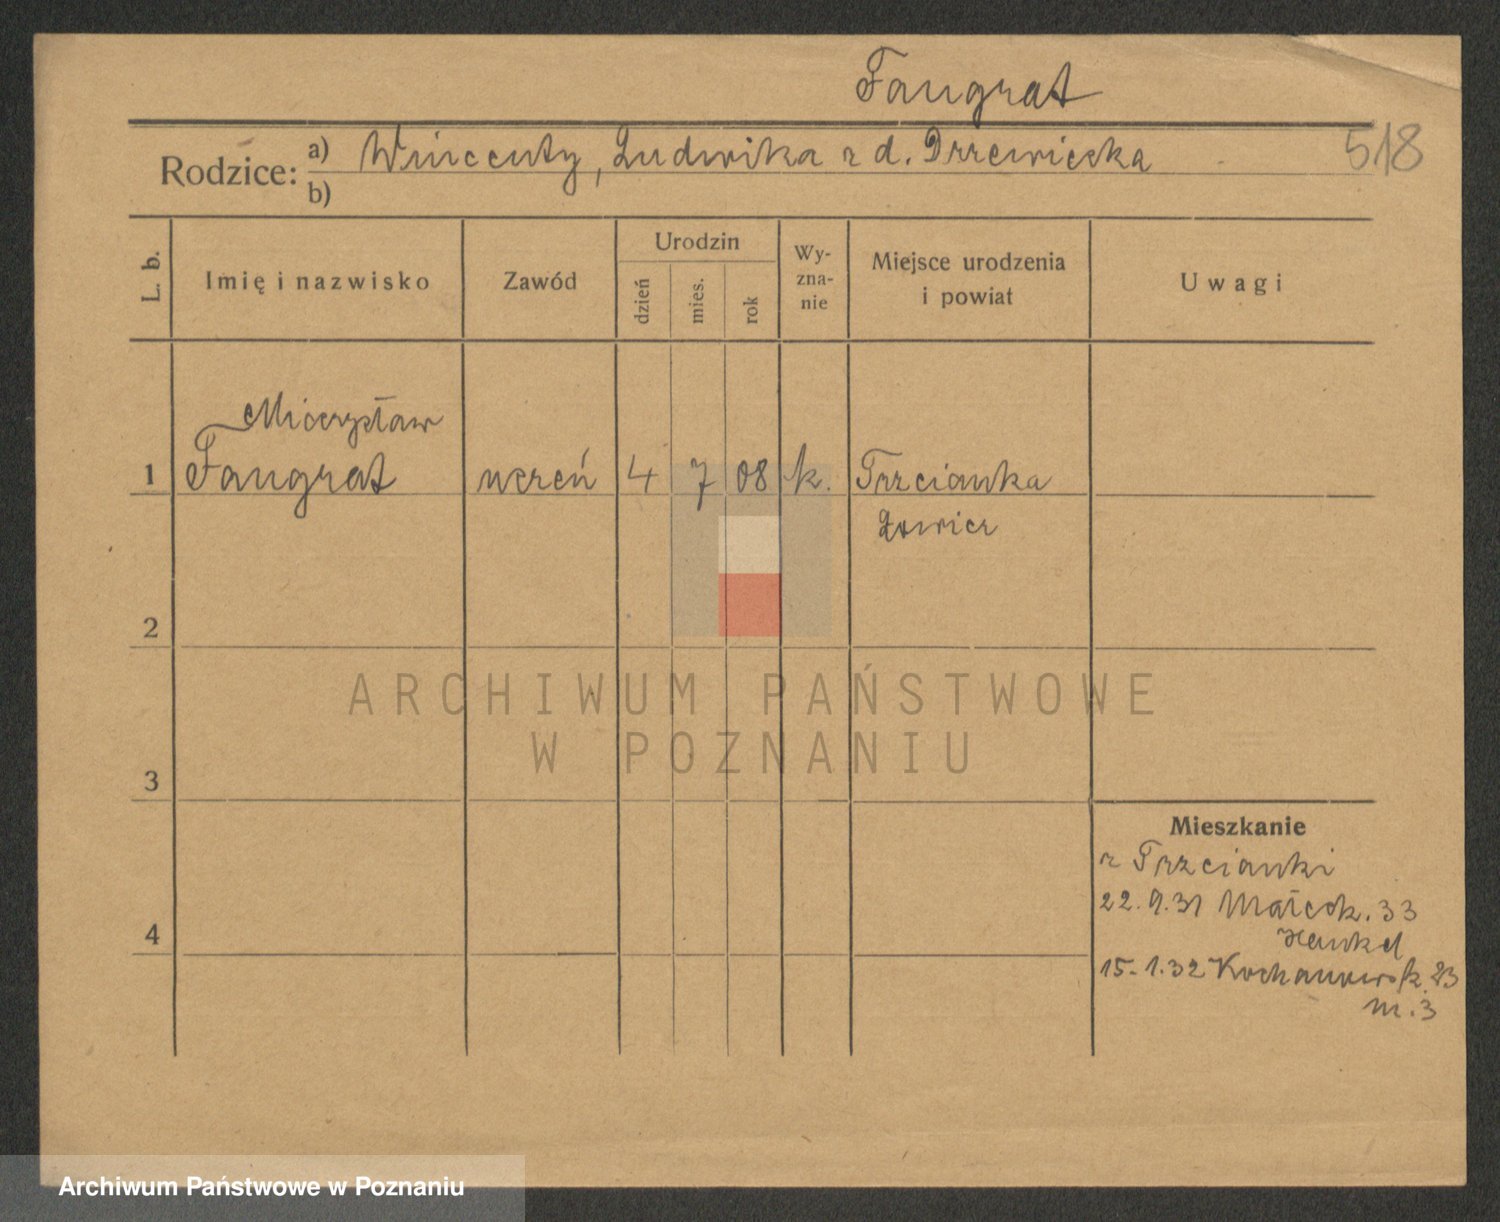 Fangrat
518
Rodzice: a) Wincenty, Ludwika z d. Drzewiecka
b)
L. b.
Imię i nazwisko
Zawód
Urodzin
dzień
mies.
rok
Wy-
zna-
nie
Miejsce urodzenia
i powiat
Uwagi
Mieczysław
1 Fangrat uczeń 4 7 08 k. Trzcianka
Łowicz
2
3
4
Mieszkanie
z Trzcianki
22. 9. 31 Małeck. 33
Henkel
15. 1. 32 Kochanowsk. 23
m. 3
ARCHIWUM PAŃSTWOWE
W POZNANIU
Archiwum Państwowe w Poznaniu